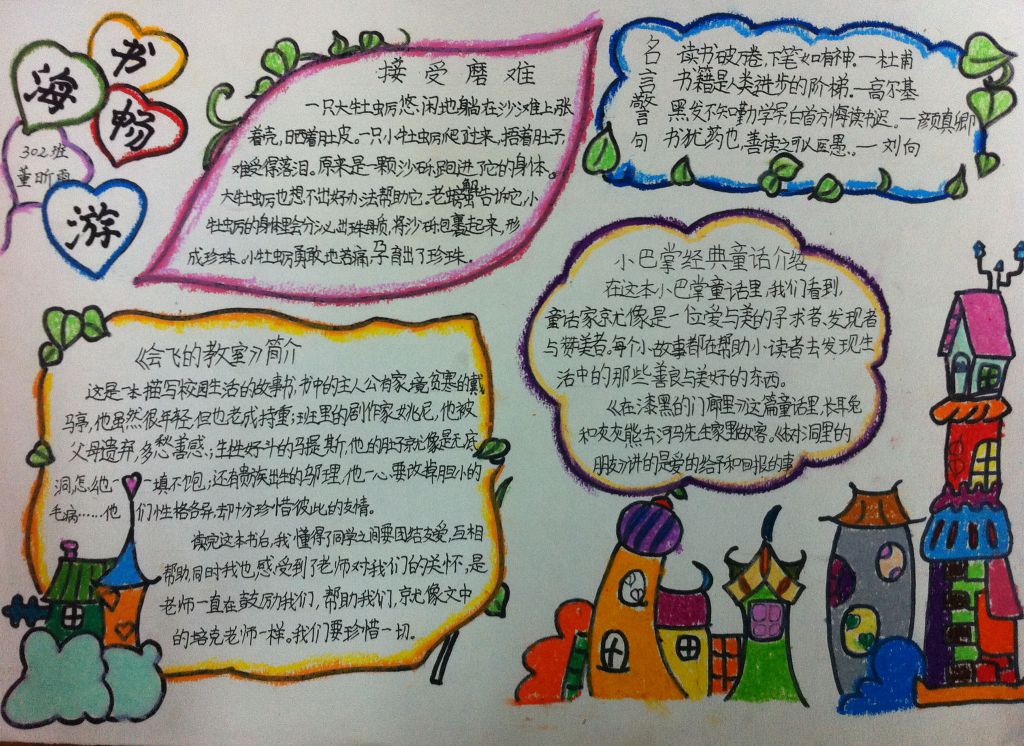 书
海
畅
游
302班
董昕雨
接受磨难
一只大牡蛎悠闲地躺在沙滩上张
着壳,晒着肚皮。一只小牡蛎爬过来,捂着肚子
难受得落泪。原来是一颗沙砾跑进了它的身体。
大牡蛎也想不出好办法帮助它。老螃蟹告诉它,小
牡蛎的身体里会分泌出珠母质,将沙砾包裹起来,形
成珍珠。小牡蛎勇敢地若痛子育出了珍珠.
名言警句
读书破万卷,下笔如有神.一杜甫
书籍是人类进步的阶梯.一高尔基
黑发不知勤学早白首方悔读书迟。一颜真卿
书犹药也,善读之可以医愚.一刘向
小巴掌经典童话介绍
在这本小巴掌童话里,我们看到,
童话家就像是一位爱与美的寻求者、发现者
与赞美者。每个小故事都在帮助小读者去发现生
活中的那些善良与美好的东西。
《在漆黑的门廊里》这篇童话里,长耳兔
和灰灰熊去河马先生家里做客。《树洞里的
朋友》讲的是爱的给予和回报的事
《会飞的教室》简介
这是一本描写校园生活的故事书,书中的主人公有家境贫寒的戴
马亭,他虽然很年轻,但也老成持重;班里的剧作家姚尼,他被
父母遗弃,多愁善感,;生性好斗的马提斯,他的肚子就像是无底
洞,怎么也一填不饱;还有贵族出生的邬理,他一心要改掉胆小的
毛病……他们性格各异,却十分珍惜彼此的友情。
读完这本书后,我懂得了同学之间要团结友爱,互相
帮助,同时我也感受到了老师对我们的关怀,是
老师一直在鼓励我们,帮助我们,就像文中
的培克老师一样。我们要珍惜一切.